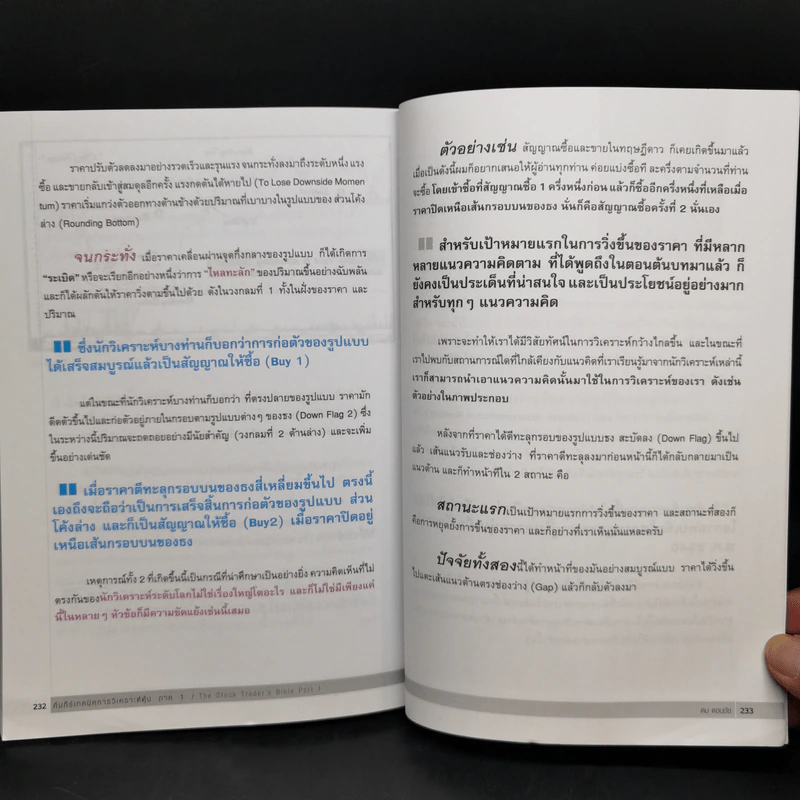 ราคาปรับตัวลดลงมาอย่างรวดเร็วและรุนแรง จนกระทั่งลงมาถึงระดับหนึ่ง แรง
ซื้อ และขายกลับเข้าสู่สมดุลอีกครั้ง แรงกดดันได้หายไป (To Lose Downside Momen
tum) ราคาเริ่มแกว่งตัวออกทางด้านข้างด้วยปริมาณที่เบาบางในรูปแบบของ ส่วนโค้ง
ล่าง (Rounding Bottom)
จนกระทั่ง เมื่อราคาเคลื่อนผ่านจุดกึ่งกลางของรูปแบบ ก็ได้เกิดการ
“ระเบิด” หรือจะเรียกอีกอย่างหนึ่งว่าการ “ไหลทะลัก” ของปริมาณขึ้นอย่างฉับพลัน
และก็ได้ผลักดันให้ราคาวิ่งตามขึ้นไปด้วย ดังในวงกลมที่ 1 ทั้งในฝั่งของราคา และ
ปริมาณ
ซึ่งนักวิเคราะห์บางท่านก็บอกว่าการก่อตัวของรูปแบบ
ได้เสร็จสมบูรณ์แล้วเป็นสัญญาณให้ซื้อ (Buy 1)
แต่ในขณะที่นักวิเคราะห์บางท่านก็บอกว่า ที่ตรงปลายของรูปแบบ ราคามัก
ดีดตัวขึ้นไปและก่อตัวอยู่ภายในกรอบตามรูปแบบต่างๆ ของธง (Down Flag 2) ซึ่ง
ในระหว่างนี้ปริมาณจะถดถอยอย่างมีนัยสำคัญ (วงกลมที่ 2 ด้านล่าง) และจะเพิ่ม
ขึ้นอย่างเด่นชัด
เมื่อราคาตีทะลุกรอบบนของธงสี่เหลี่ยมขึ้นไป ตรงนี้
เองถึงจะถือว่าเป็นการเสร็จสิ้นการก่อตัวของรูปแบบ ส่วน
โค้งล่าง และก็เป็นสัญญาณให้ซื้อ (Buy2) เมื่อราคาปิดอยู่
เหนือเส้นกรอบบนของธง
เหตุการณ์ทั้ง 2 ที่เกิดขึ้นนี้เป็นกรณีที่น่าศึกษาเป็นอย่างยิ่ง ความคิดเห็นที่ไม่
ตรงกันของนักวิเคราะห์ระดับโลกไม่ใช่เรื่องใหญ่โตอะไร และก็ไม่ใช่มีเพียงแค่
นี้ในหลายๆ หัวข้อก็มีความขัดแย้งเช่นนี้เสมอ
232 คัมภีร์เทคนิคการวิเคราะห์หุ้น ภาค 1 / The Stock Trader's Bible Part I
ตัวอย่างเช่น สัญญาณซื้อและขายในทฤษฎีดาว ก็เคยเกิดขึ้นมาแล้ว
เมื่อเป็นดังนี้ผมก็อยากเสนอให้ผู้อ่านทุกท่าน ค่อยแบ่งซื้อที ละครึ่งตามจำนวนที่ท่าน
จะซื้อ โดยเข้าซื้อที่สัญญาณซื้อ 1 ครึ่งหนึ่งก่อน แล้วก็ซื้ออีกครึ่งหนึ่งที่เหลือเมื่อ
ราคาปิดเหนือเส้นกรอบบนของธง นั่นก็คือสัญญาณซื้อครั้งที่ 2 นั่นเอง
สำหรับเป้าหมายแรกในการวิ่งขึ้นของราคา ที่มีหลาก
หลายแนวความคิดตาม ที่ได้พูดถึงในตอนต้นบทมาแล้ว ก็
ยังคงเป็นประเด็นที่น่าสนใจ และเป็นประโยชน์อยู่อย่างมาก
สำหรับทุกๆ แนวความคิด
เพราะจะทำให้เราได้มีวิสัยทัศน์ในการวิเคราะห์กว้างไกลขึ้น และในขณะที่
เราไปพบกับสถานการณ์ใดที่ใกล้เคียงกับแนวคิดที่เราเรียนรู้มาจากนักวิเคราะห์เหล่านี้
เราก็สามารถนำเอาแนวความคิดนั้นมาใช้ในการวิเคราะห์ของเรา ดังเช่น
ตัวอย่างในภาพประกอบ
หลังจากที่ราคาได้ตีทะลุกรอบของรูปแบบธง สะบัดลง (Down Flag) ขึ้นไป
แล้ว เส้นแนวรับและช่องว่าง ที่ราคาตีทะลุลงมาก่อนหน้านี้ก็ได้กลับกลายมาเป็น
แนวต้าน และก็ทำหน้าที่ใน 2 สถานะ คือ
สถานะแรกเป็นเป้าหมายแรกการวิ่งขึ้นของราคา และสถานะที่สองก็
คือการหยุดยั้งการขึ้นของราคา และก็อย่างที่เราเห็นนั่นแหละครับ
ปัจจัยทั้งสองนี้ได้ทำหน้าที่ของมันอย่างสมบูรณ์แบบ ราคาได้วิ่งขึ้น
ไปแตะเส้นแนวต้านตรงช่องว่าง (Gap) แล้วก็กลับตัวลงมา
233